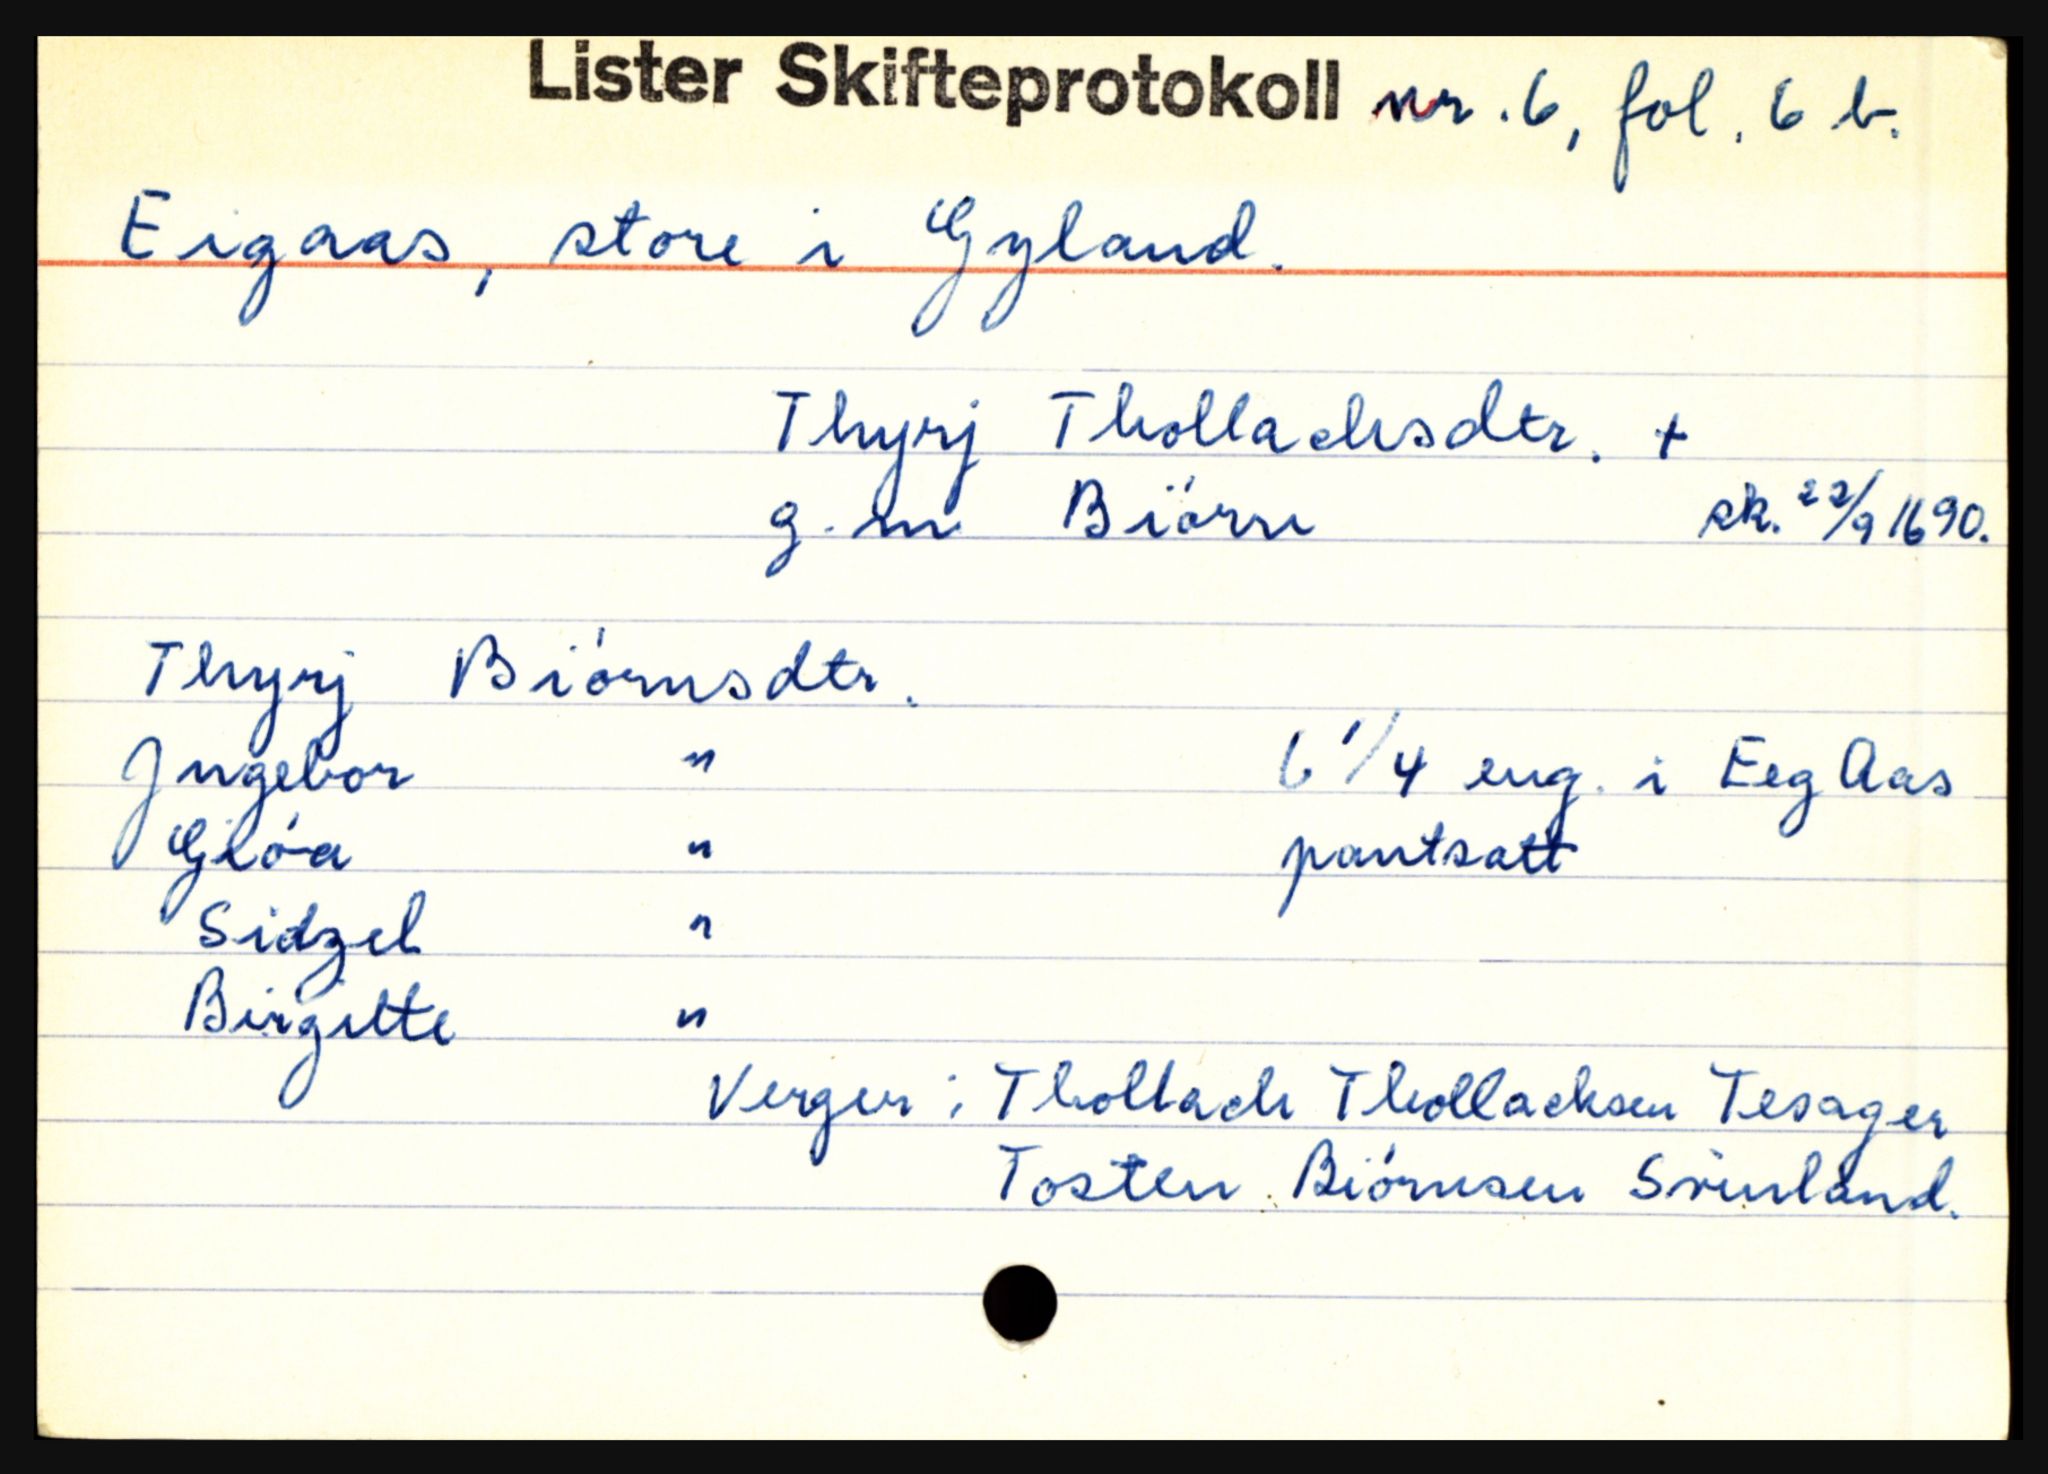 Lister Skifteprotokoll nr. 6, fol. 6 b.
Eigaas, store i Gyland.
Thyrj Thollachsdtr. +
g. m. Biórn sk. 22/9 1690.
Thyrj Biórnsdtr.
Jngebor "
6 1/4 eng. i Eeg Aas
Gióa "
pantsatt
Sidzel "
Birgitte "
Verger: Thollach Thollachsen Tesager
Tosten Biórnsen Svinland.